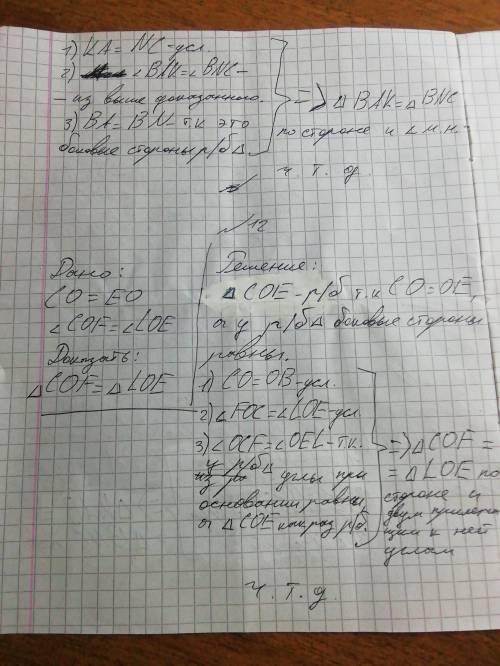 1) KA = NC - усл.
2) ∠BAK = ∠BNC -
- из выше доказанного.
3) BA = BN т.к это
боковые стороны р/б △
=> △BAK = △BNC
по стороне и ∠ м.н.
ч. т. д.
№12
Дано:
CO = EO
∠COF = ∠LOE
Доказать:
△COF = △LOE
Решение:
△COE - р/б т.к CO = OE,
а у р/б △ боковые стороны
равны.
1) CO = OB - усл.
2) ∠FOC = ∠LOE - усл
3) ∠OCF = ∠OEL - т.к.
у р/б △
углы при
основании равны,
а △COE как раз р/б.
=> △COF =
= △LOE по
стороне и
двум прилежа-
щим к ней
углам
ч. т. д.